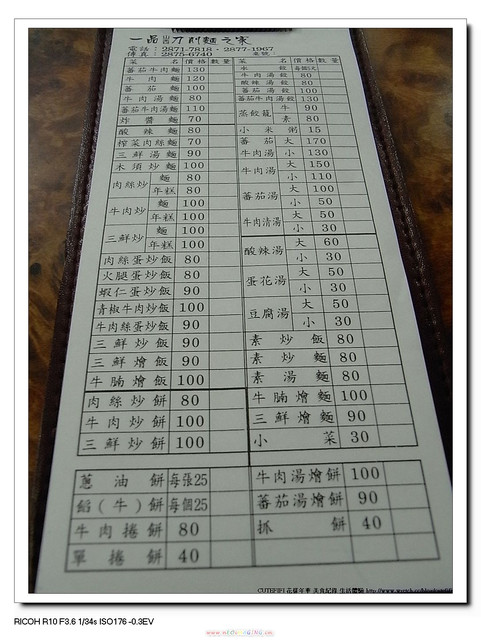 一品山西刀削麵之家
電話：2871-7818・2877-1967
傳真：2875-6740 桌號：
菜名 價格 數量 菜名 價格 數量
番茄牛肉麵 130
牛肉麵 120
番茄麵 100
牛肉湯麵 80
番茄牛肉湯麵 110
炸醬麵 70
酸辣麵 80
榨菜肉絲麵 70
三鮮湯麵 90
木須炒麵 100
肉絲炒 麵 80
年糕 80
牛肉炒 麵 100
年糕 100
三鮮炒 麵 100
年糕 100
肉絲蛋炒飯 80
火腿蛋炒飯 80
蝦仁蛋炒飯 90
青椒牛肉炒飯 100
牛肉絲蛋炒飯 90
三鮮炒飯 90
三鮮燴飯 90
牛腩燴飯 100
肉絲炒餅 80
牛肉炒餅 100
三鮮炒餅 100
水餃
牛肉湯餃 80
酸辣湯餃 80
番茄湯餃 100
番茄牛肉湯餃 130
蒸餃籠 牛 90
素 80
小米粥 15
番茄牛肉湯 大 170
小 130
牛肉湯 大 150
小 110
番茄湯 大 100
小 50
牛肉清湯 大 50
小 30
酸辣湯 大 60
小 30
蛋花湯 大 50
小 30
豆腐湯 大 50
小 30
素炒飯 80
素炒麵 80
素湯麵 80
牛腩燴麵 100
三鮮燴麵 90
小菜 30
蔥油餅 每張25
餡(牛)餅 每個25
牛肉捲餅 80
單捲餅 40
牛肉湯燴餅 100
蕃茄湯燴餅 90
抓餅 40
CUTEFIFI 花樣年華 美食紀錄 生活體驗
RICOH R10 F3.6 1/34s ISO176 -0.3EV